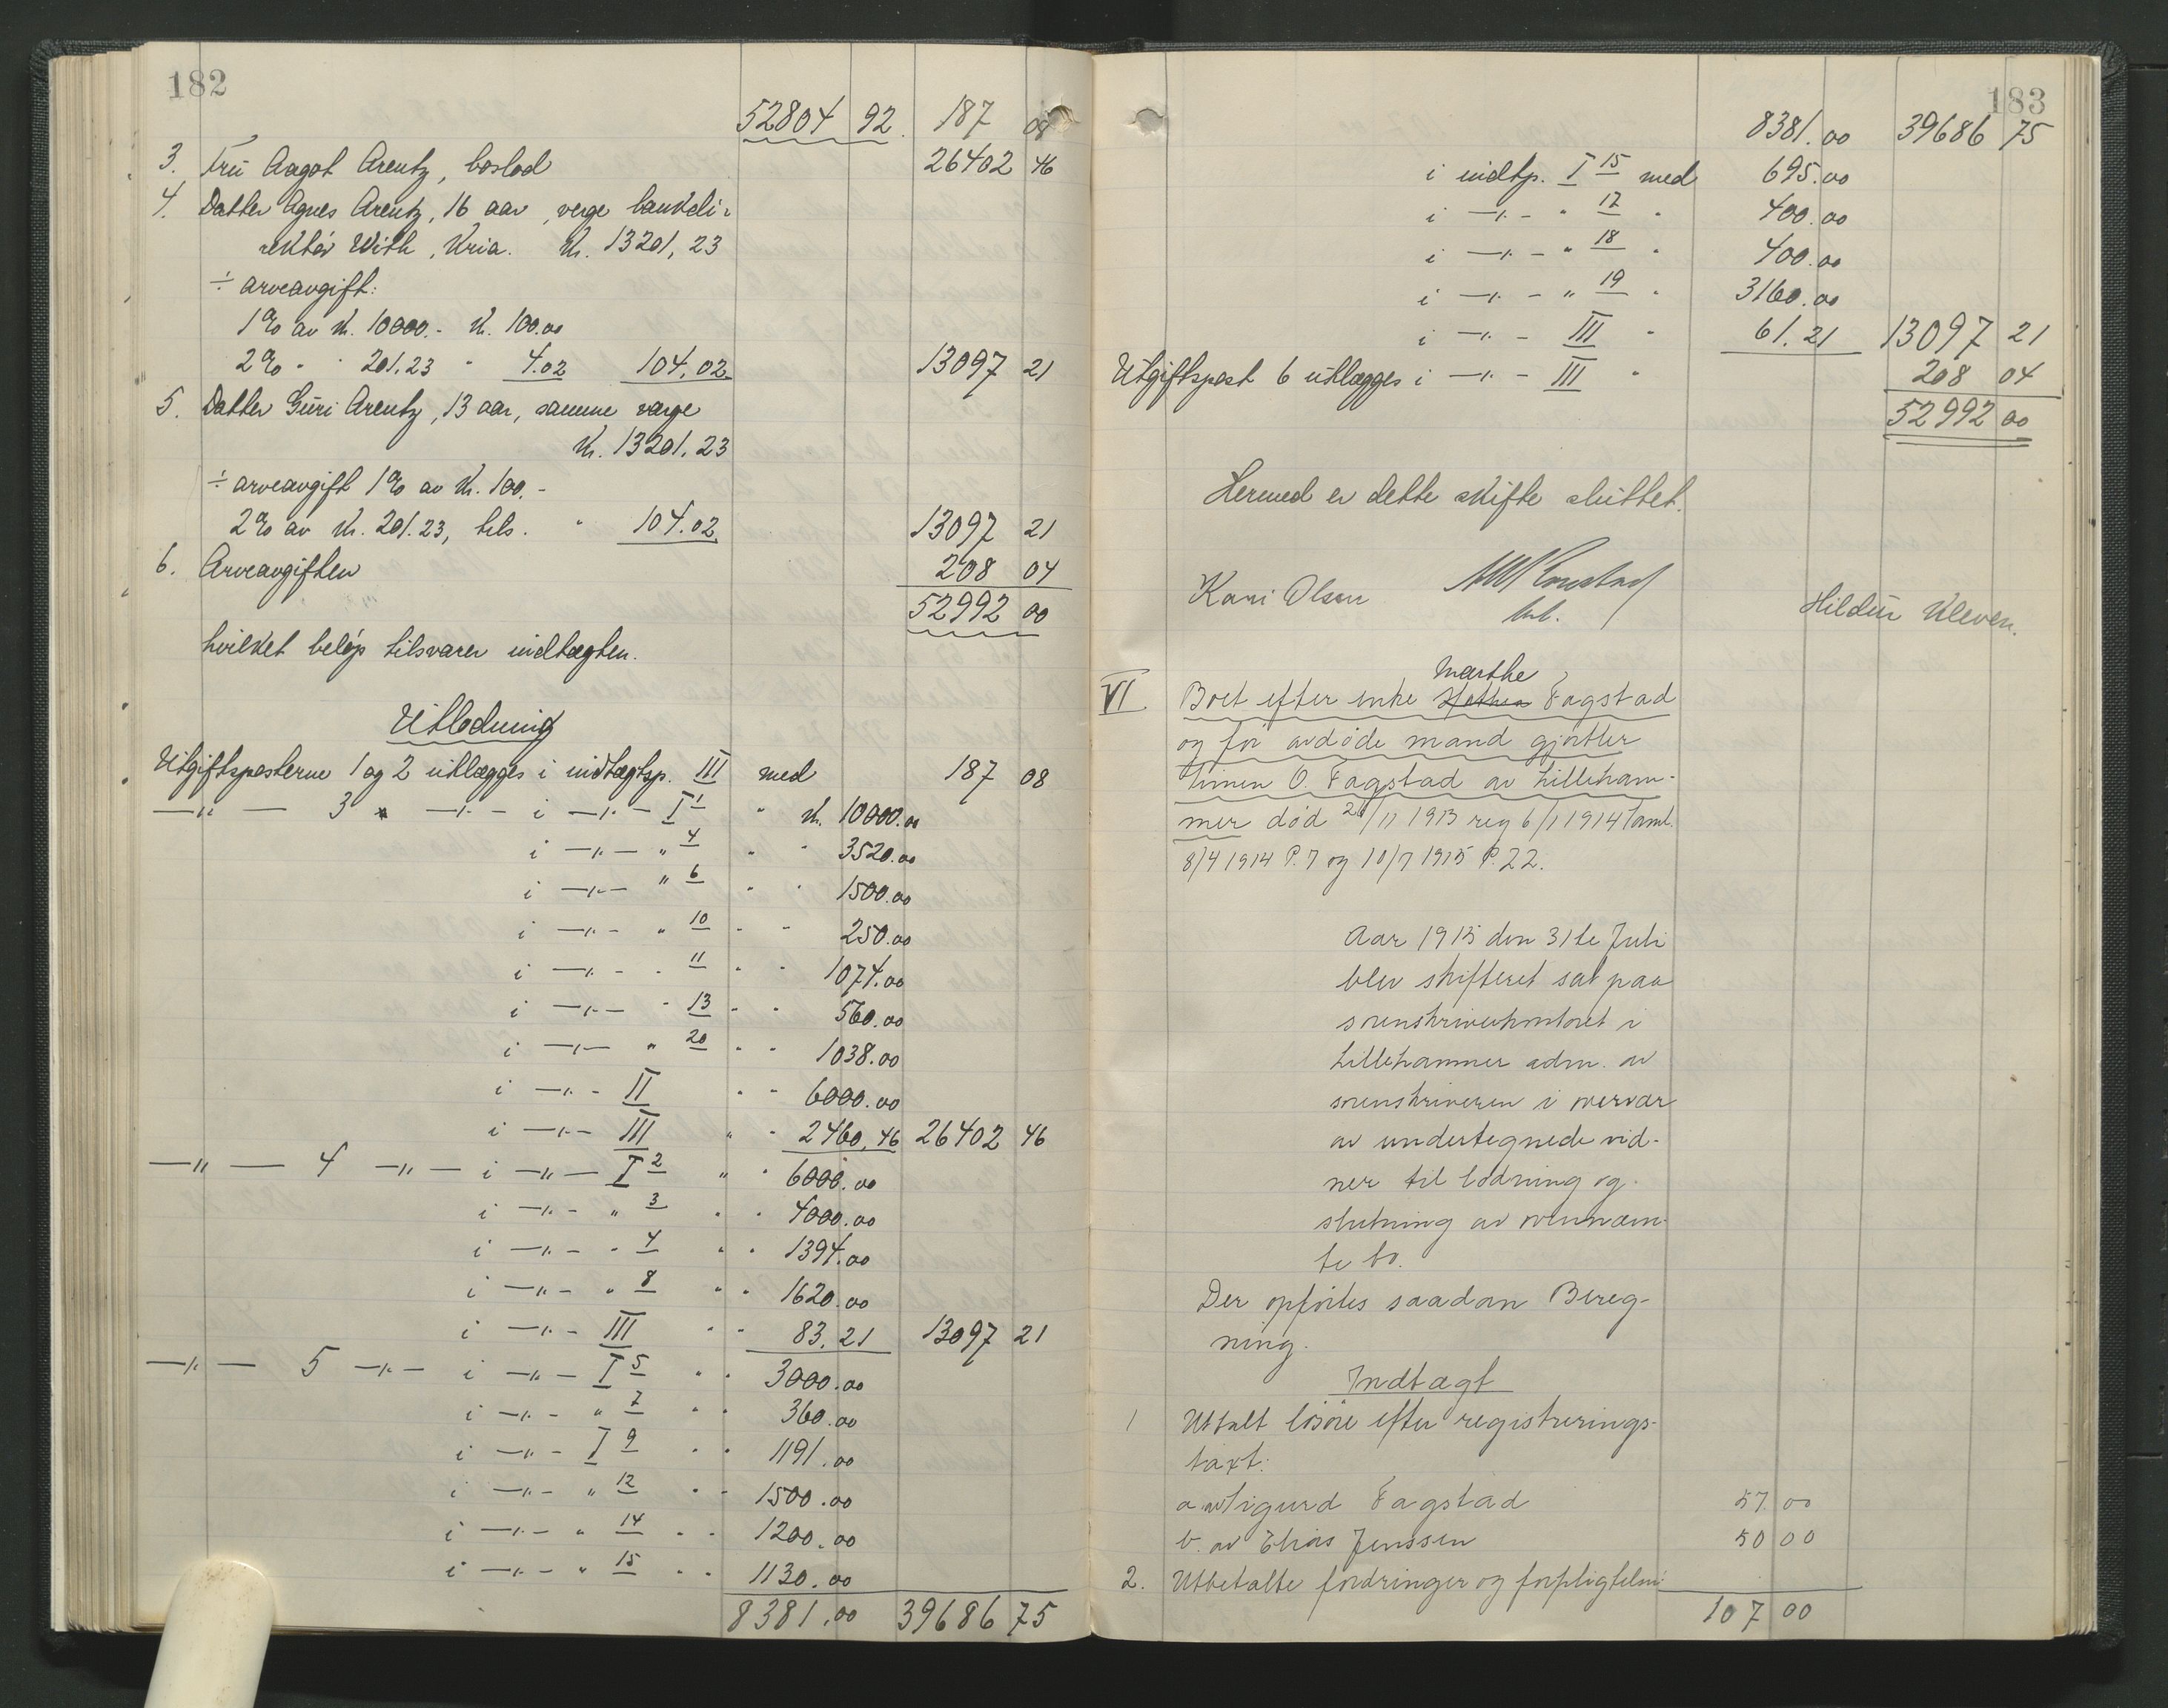 182
52804 92. 187 08
3. Fru Aagot Arentz, boslod 26402 46
4. Datter Agnes Arentz, 16 aar, verge bankdi-
rektør With, Kria. Kr. 13201,23
÷ arveavgift:
1% av Kr. 10000.- Kr. 100.00
2% " " 201.23 " 4.02 104.02 13097 21
5. Datter Guri Arentz, 13 aar, samme verge
Kr. 13201.23
÷ arveavgift 1% av Kr. 100.-
2% av Kr. 201.23, tils. " 104.02 13097 21
6. Arveavgiften 208 04
52992 00
hvilket beløp tilsvarer indtægten.
Utlodning
Utgiftsposterne 1 og 2 utlægges i indtægtsp. III med 187 08
—"— 3 —"— i —"— I 1 " Kr. 10000.00
i —"— " 4 " " 3520.00
i —"— " 6 " " 1500.00
i —"— " 10 " " 250.00
i —"— " 11 " " 1074.00
i —"— " 13 " " 560.00
i —"— " 20 " " 1038.00
i —"— II " " 6000.00
i —"— III " " 2460,46 26402 46
—"— 4 —"— i —"— I 2 " " 6000.00
i —"— " 3 " " 4000.00
i —"— " 4 " " 1394.00
i —"— " 8 " " 1620.00
i —"— III " " 83.21 13097 21
—"— 5 —"— i —"— I 5 " " 3000.00
i —"— " 7 " " 360.00
i —"— I 9 " " 1191.00
i —"— " 12 " " 1500.00
i —"— " 14 " " 1200.00
i —"— " 15 " " 1130.00
8381.00 39686 75
183
8381.00 39686 75
i indtp. I 15 med 695.00
i —"— " 17 " 400.00
i —"— " 18 " 400.00
i —"— " 19 " 3160.00
i —"— III " 61.21 13097 21
Utgiftspost 6 utlægges i —"— III " 208 04
52992 00
Hermed er dette skifte sluttet.
Kari Olsen
Hildur Kleven.
Marthe
VI. Boet efter enke Fagstad
og før avdøde mand gjørtler
Simen O. Fagstad av Lilleham-
mer død 21/11 1913 reg 6/1 1914 saml.
8/4 1914 P. 7 og 10/7 1915 P. 22.
Aar 1915 den 31te Juli
blev skifteret sat paa
sorenskriverkontoret i
Lillehammer adm. av
sorenskriveren i overvær
av undertegnede vid-
ner til lodning og
slutning av ovennævn-
te bo.
Der opførtes saadan Bereg-
ning.
Indtægt
1 Uttalt løsøre efter registrerings-
taxt:
a. av Sigurd Fagstad 57 00
b. av Elias Jenssen 50 00
2. Utbetalte fordringer og forpligtelser
107 00